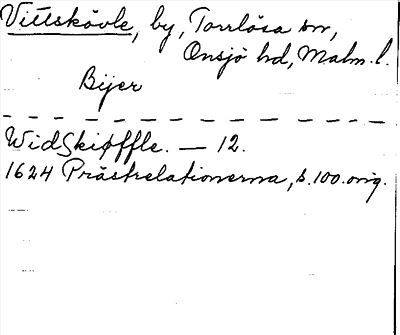 Vittskövle, by, Torrlösa sn,
Onsjö hd, Malm. l.
Bijer
WidSkiøffle. — 12.
1624 Prästrelationerna, s. 100. orig.